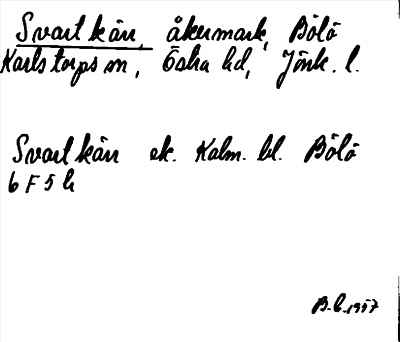 Svartkärr, åkermark, Bölö
Karlstorps sn, Östra hd, Jönk. l.
Svartkärr ek. Kalm. bl. Bölö
6 F 5 h
B-b. 1957